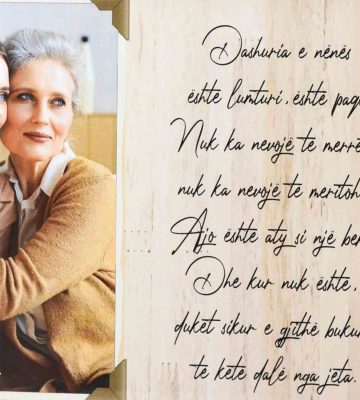 Dashuria e nënës
është lumturi, është paq
Nuk ka nevojë të merrë
nuk ka nevojë të meritoh
Ajo është aty si një be
Dhe kur nuk është,
duket sikur e gjithë buku
të ketë dalë nga jeta.